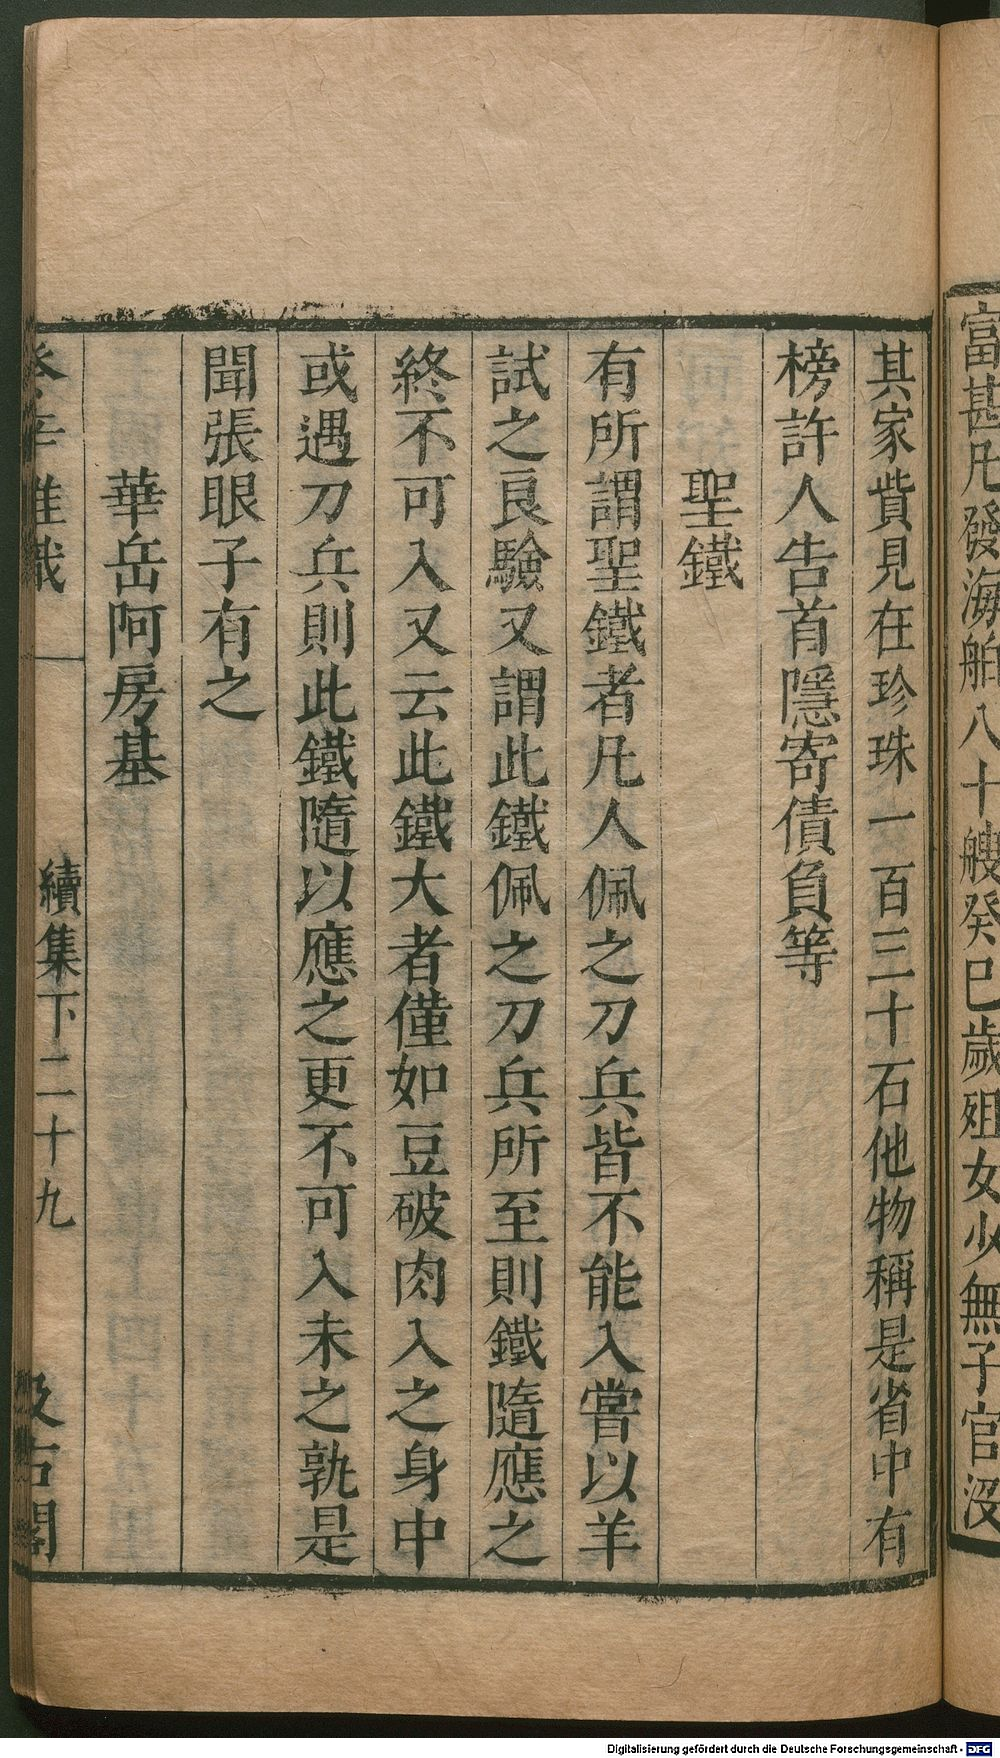 富甚凡發海舶八十艘癸巳歲殂女少無子官沒
其家貲見在珍珠一百三十石他物稱是省中有
榜許人告首隱寄債負等
聖鐵
有所謂聖鐵者凡人佩之刀兵皆不能入嘗以羊
試之良驗又謂此鐵佩之刀兵所至則鐵隨應之
終不可入又云此鐵大者僅如豆破肉入之身中
或遇刀兵則此鐵隨以應之更不可入未之孰是
聞張眼子有之
華岳阿房基
癸辛雜識 續集下二十九 汲古閣
Digitalisierung gefördert durch die Deutsche Forschungsgemeinschaft - DFG